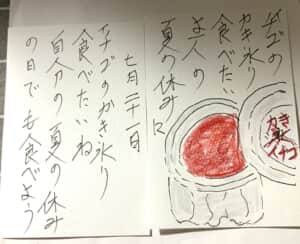 イチゴの
かき氷り
食べたい
主人の
夏の休みに
かき
氷
イチゴ
七月二十一日
イチゴのかき氷り
食べたいね
自分の夏の休み
の日でも食べよう